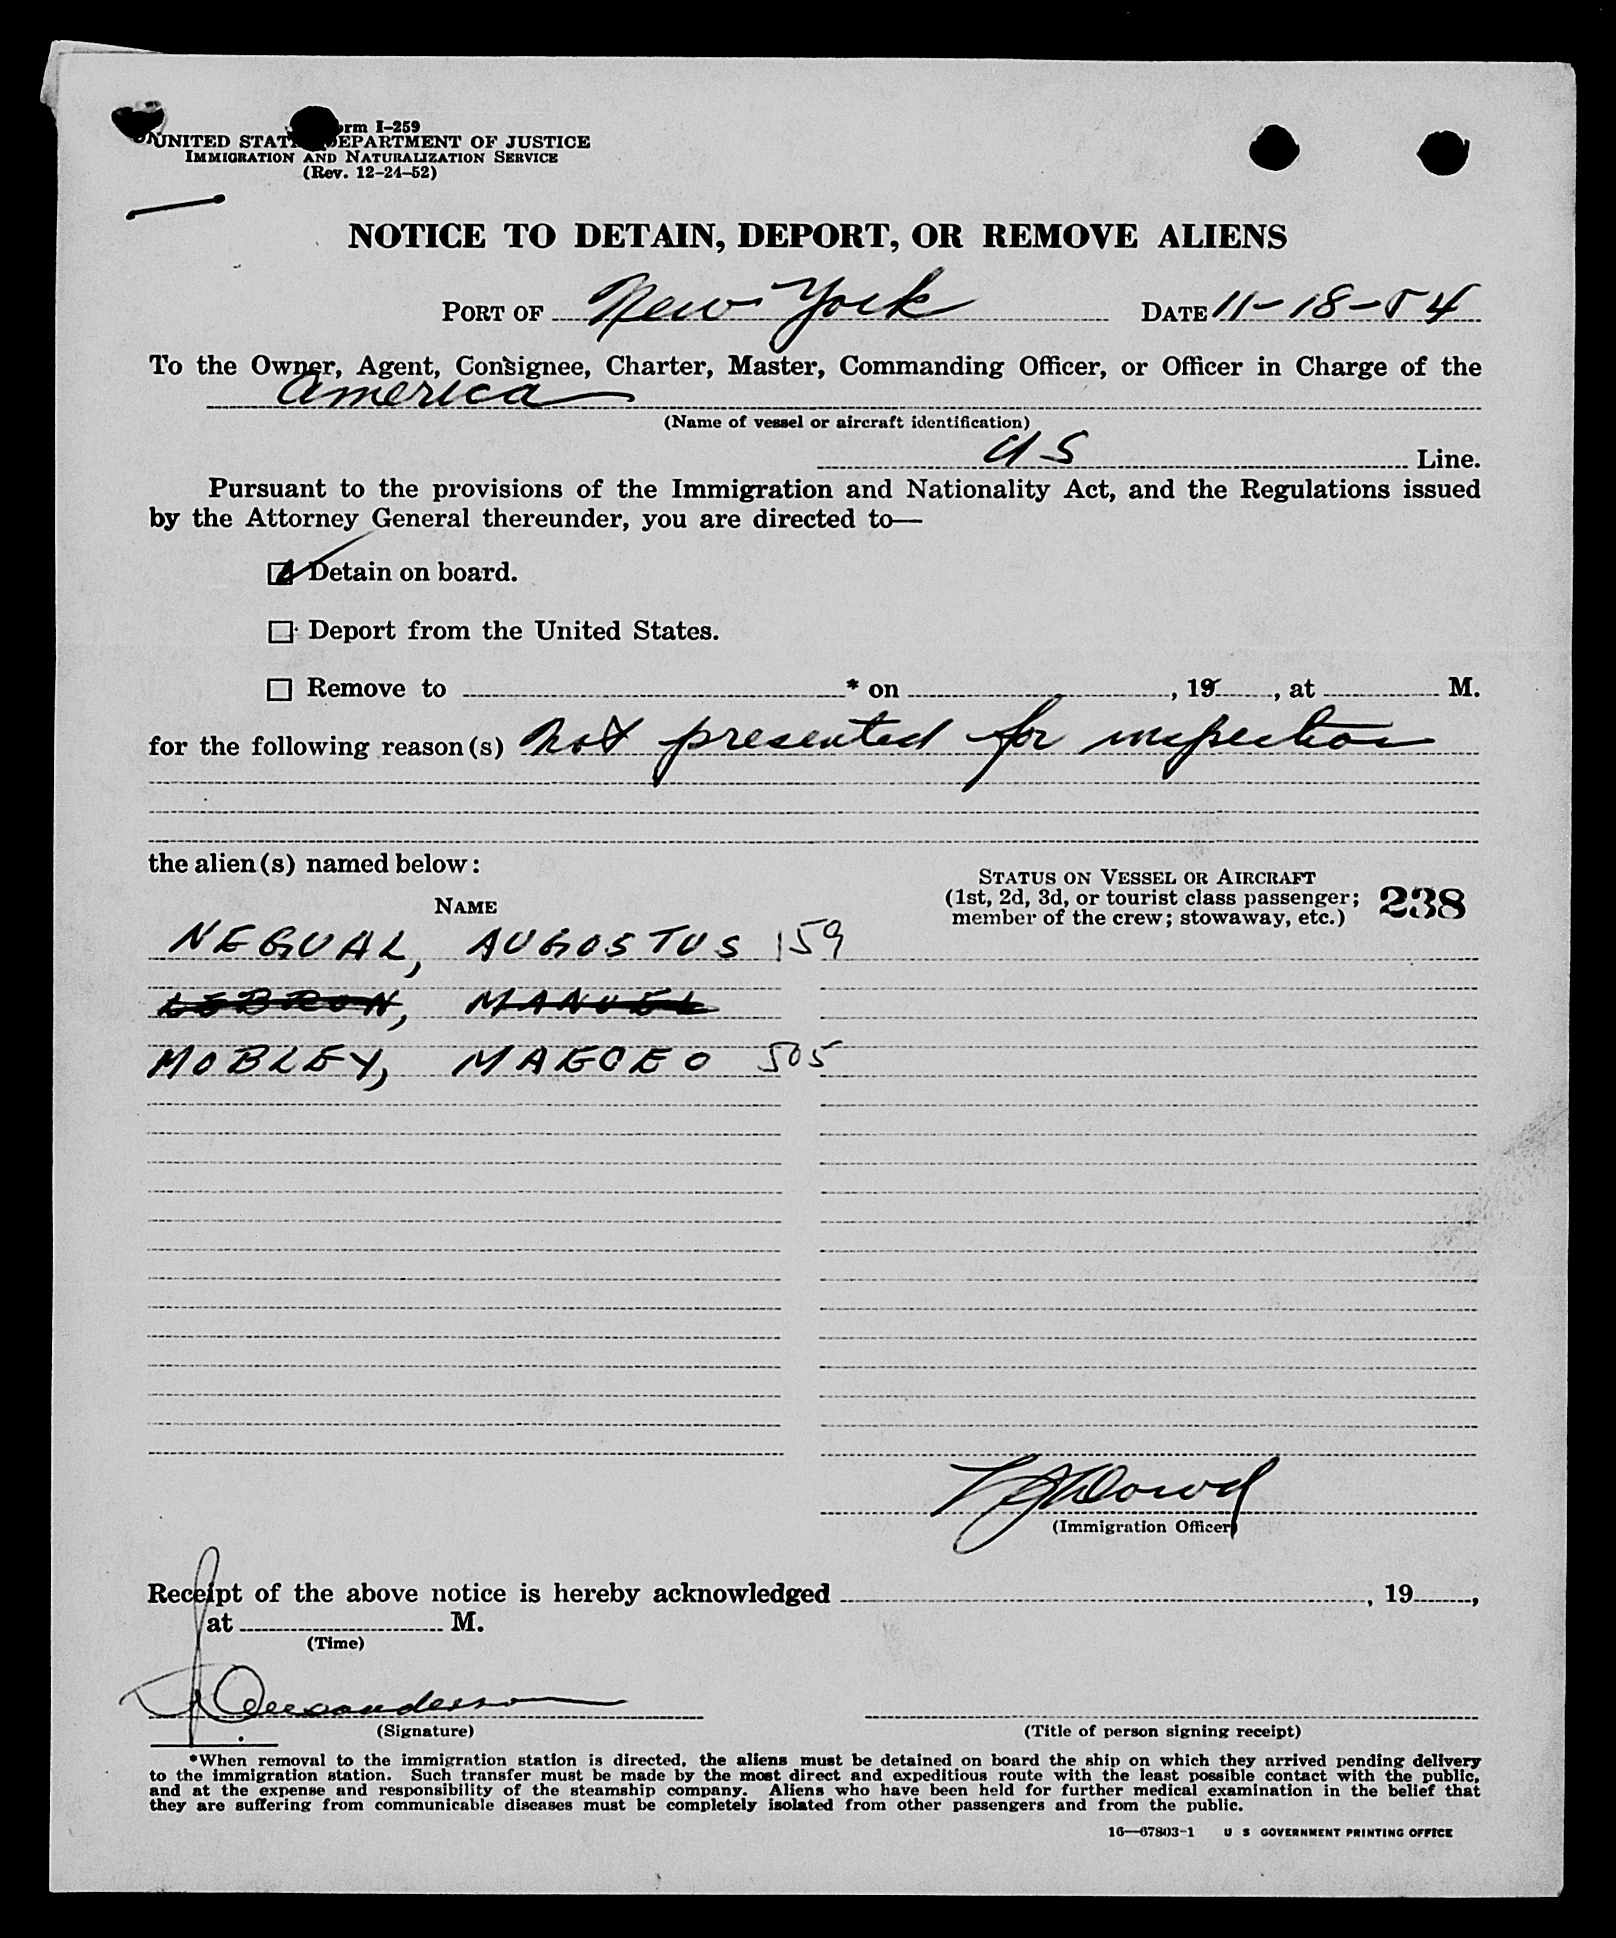 Form I-259
UNITED STATES DEPARTMENT OF JUSTICE
IMMIGRATION AND NATURALIZATION SERVICE
(Rev. 12-24-52)
NOTICE TO DETAIN, DEPORT, OR REMOVE ALIENS
PORT OF New York DATE 11-18-54
To the Owner, Agent, Consignee, Charter, Master, Commanding Officer, or Officer in Charge of the
America
(Name of vessel or aircraft identification)
US Line.
Pursuant to the provisions of the Immigration and Nationality Act, and the Regulations issued
by the Attorney General thereunder, you are directed to—
Detain on board.
Deport from the United States.
Remove to * on , 19 , at M.
for the following reason(s) not presented for inspection
the alien(s) named below:
STATUS ON VESSEL OR AIRCRAFT
(1st, 2d, 3d, or tourist class passenger;
member of the crew; stowaway, etc.)
238
NAME
NEGUAL, AUGOSTUS 159
LEBRON, MANUEL
MOBLEY, MAECEO 505
Dowd
(Immigration Officer)
Receipt of the above notice is hereby acknowledged , 19 ,
at M.
(Time)
(Signature) (Title of person signing receipt)
*When removal to the immigration station is directed, the aliens must be detained on board the ship on which they arrived pending delivery
to the immigration station. Such transfer must be made by the most direct and expeditious route with the least possible contact with the public,
and at the expense and responsibility of the steamship company. Aliens who have been held for further medical examination in the belief that
they are suffering from communicable diseases must be completely isolated from other passengers and from the public.
16—67803-1 U S GOVERNMENT PRINTING OFFICE